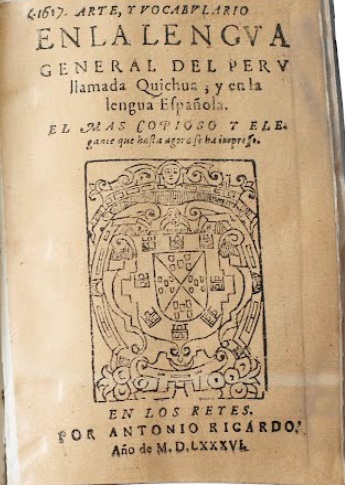 ARTE, Y VOCABVLARIO
EN LA LENGVA
GENERAL DEL PERV
llamada Quichua, y en la
lengua Española.
EL MAS COPIOSO Y ELE-
gante que hasta agora se ha impresso.
EN LOS REYES.
POR ANTONIO RICARDO.
Año de M. D. LXXXVI.